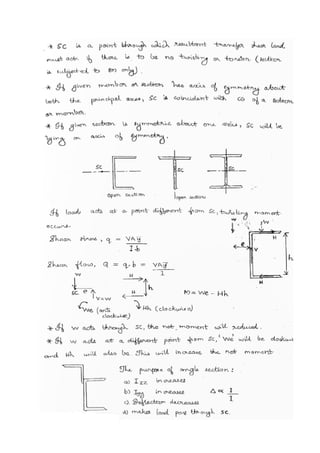 * SC is a point through which resultant transfer shear load
must act if there is to be no twisting or torsion (section
is subjected to BM only).
* If given member or section has axis of symmetry about
both the principal axes, SC is coincident with CG of a section
or member.
* If given section is symmetric about one axis, SC will be
lying on axis of symmetry.
SC SC SC
Open section Iopen section
If load acts at a point different from SC, twisting moment
occurs.
Shear stress, q = VAȳ / I.b
Shear flow, Q = q.b = VAȳ / I
W W H e V h H
W H h
SC e V=W H M = We - Hh
We (anti clockwise) Hh (clockwise)
* If W acts through SC, the net moment will reduced.
* If W acts at a different point from SC, 'We' will be clockwise
and Hh will also be. This will increase the net moment
The purpose of angle section :
a) Izz increases
b) Iyy increases Δ ∝ 1/I
c) Deflection decreases
d) makes load pass through SC.